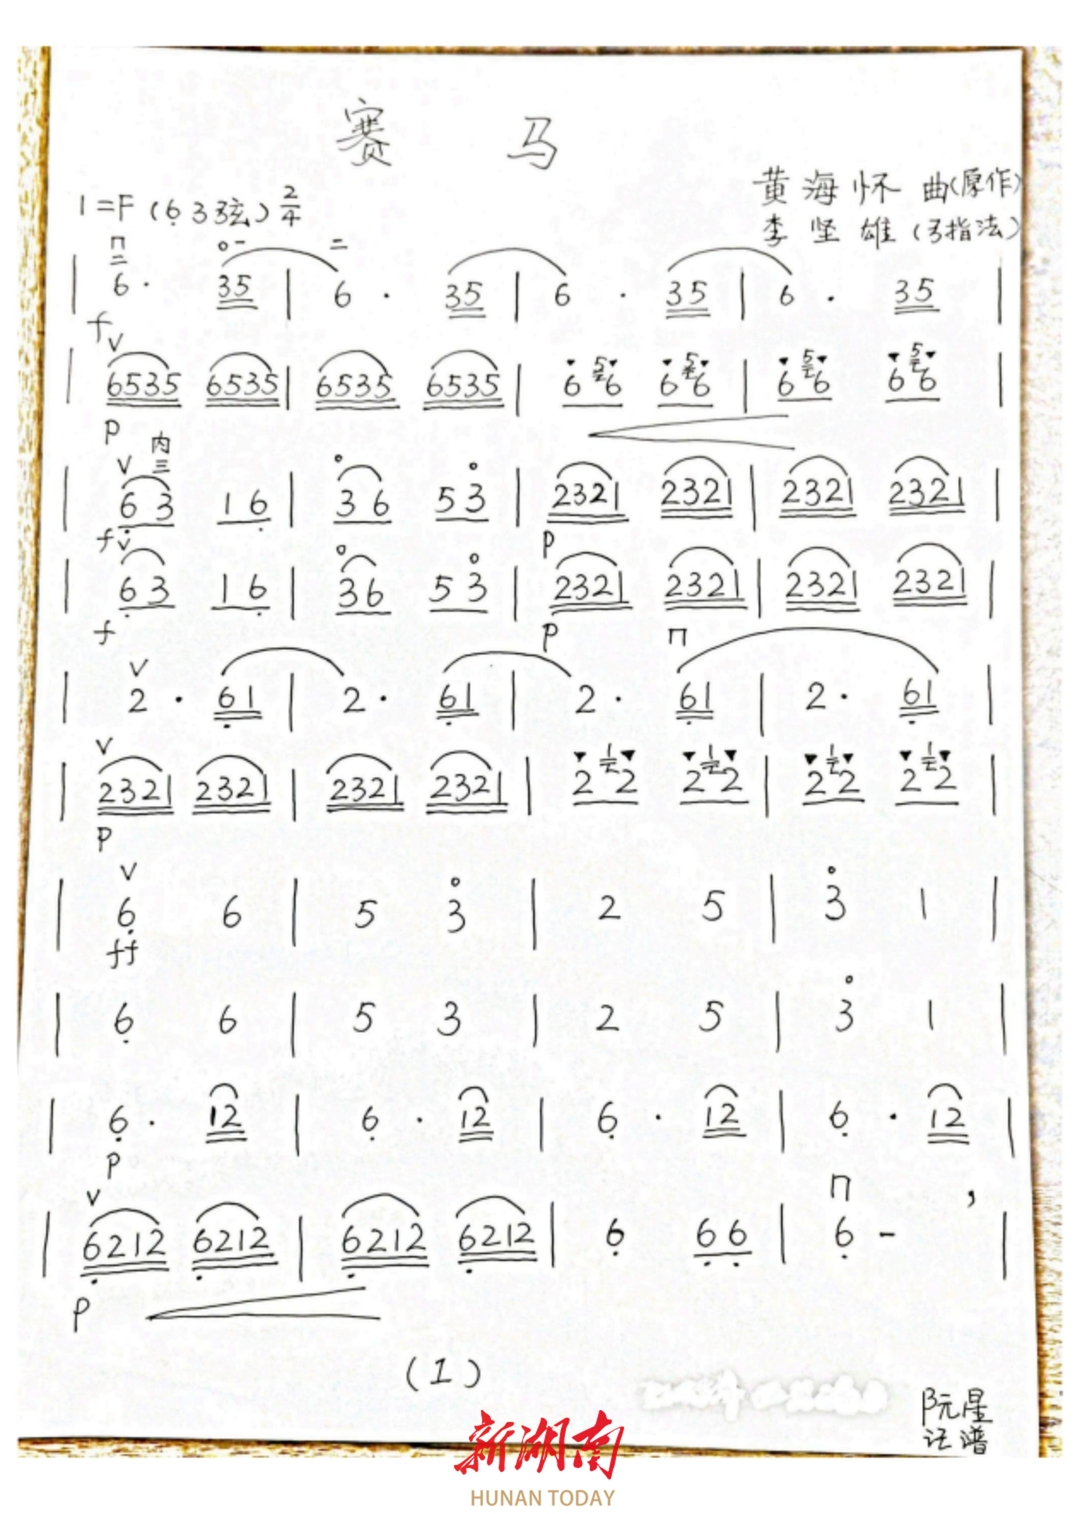 赛 马
1=F (6 3 弦) 2/4
黄 海 怀 曲(原作)
李 坚 雄 (弓指法)
| 6 · 35 | 6 · 35 | 6 · 35 | 6 · 35 |
f
| 6535 6535 | 6535 6535 | 6 5 6 6 5 6 | 6 5 6 6 5 6 |
p
内
三
| 63 16 | 36 53 | 2321 2321 | 2321 2321 |
f p
| 63 16 | 36 53 | 2321 2321 | 2321 2321 |
f p
| 2 · 61 | 2 · 61 | 2 · 61 | 2 · 61 |
| 2321 2321 | 2321 2321 | 2 1 2 2 1 2 | 2 1 2 2 1 2 |
p
| 6 6 | 5 3 | 2 5 | 3 1 |
ff
| 6 6 | 5 3 | 2 5 | 3 1 |
| 6 · 12 | 6 · 12 | 6 · 12 | 6 · 12 |
p
| 6212 6212 | 6212 6212 | 6 66 | 6 - , |
p
(1)
阮星
记谱
新湖南
HUNAN TODAY